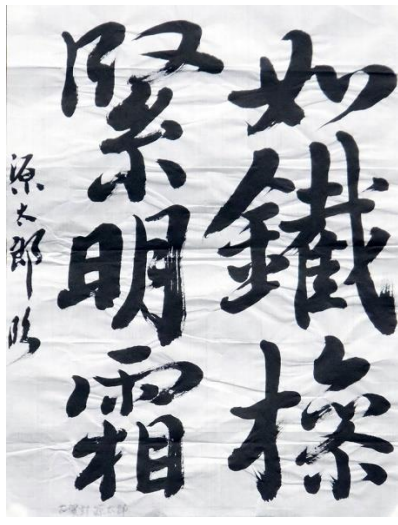 如鐵操
緊明霜
源太郎臨